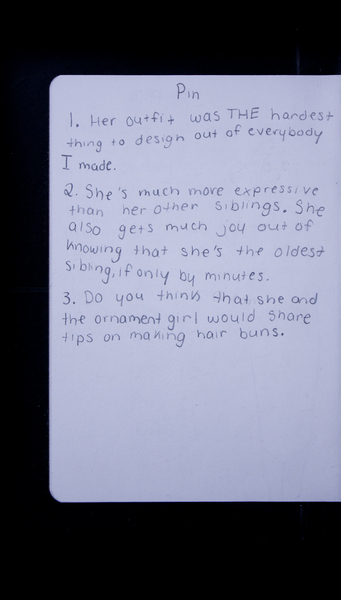 Pin
1. Her outfit was THE hardest
thing to design out of everybody
I made.
2. She's much more expressive
than her other siblings. She
also gets much joy out of
knowing that she's the oldest
sibling, if only by minutes.
3. Do you think that she and
the ornament girl would share
tips on making hair buns.